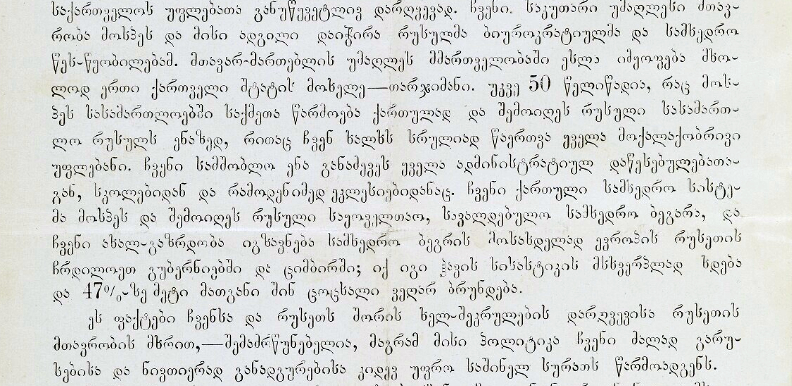 საქართველოს უფლებათა განუწყვეტლივ დარღვევად. ჩვენი. საკუთარი უმაღლესი მთავ-
რობა მოსპეს და მისი ადგილი დაიჭირა რუსულმა ბიუროკრატიულმა და სამხედრო
წეს-წყობილებამ. მთავარ-მართებლის უმაღლეს მმართველობაში ესლა იმყოფება მხო-
ლოდ ერთი ქართველი შტატის მოხელე—თარჯიმანი. უკვე 50 წელიწადია, რაც მოს-
პეს სასამართლოებში საქმეთა წარმოება ქართულად და შემოიღეს რუსული სასამართ-
ლო რუსულს ენაზედ, რითაც ჩვენ ხალხს სრულიად წაერთვა ყველა მოქალაქობრივი
უფლებანი. ჩვენი სამშობლო ენა განაძევეს ყველა ადმინისტრატიულ დაწესებულებათა-
გან, სკოლებიდან და რამოდენიმედ ეკლესიებიდანაც. ჩვენი ქართული სამხედრო სისტე-
მა მოსპეს და შემოიღეს რუსული საყოველთაო, სავალდებულო სამხედრო ბეგარა, და
ჩვენი ახალ-გაზრდობა იგზავნება სამხედრო ბეგრის მოსახდელად ევროპის რუსეთის
ჩრდილოეთ გუბერნიებში და ციმბირში; იქ იგი ჰავის სისასტიკის მსხვერპლად ხდება
და 47%-ზე მეტი მათგანი შინ ცოცხალი ვეღარ ბრუნდება.
ეს ფაქტები ჩვენსა და რუსეთს შორის ხელ-შეკრულების დარღვევისა რუსეთის
მთავრობის მხრით,—შემაძრწუნებელია, მაგრამ მისი პოლიტიკა ჩვენი ძალად გარუ-
სებისა და ნივთიერად განადგურებისა კიდევ უფრო საშინელ სურათს წარმოადგენს.